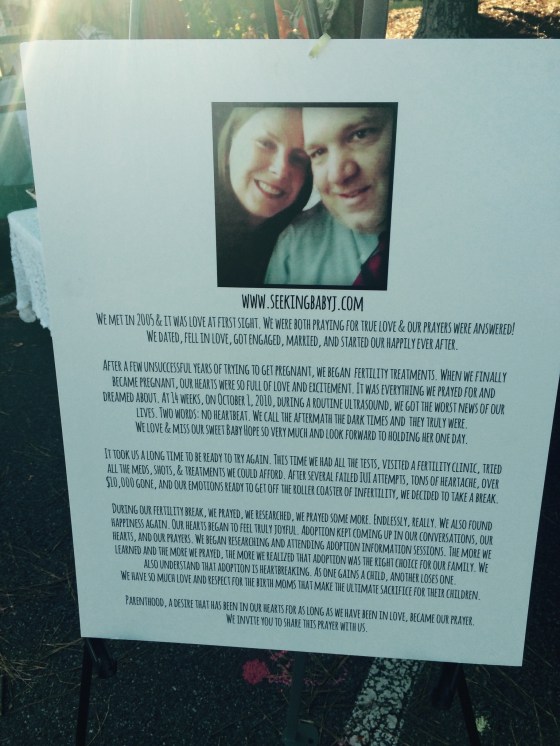 WWW.SEEKINGBABYJ.COM
WE MET IN 2005 & IT WAS LOVE AT FIRST SIGHT. WE WERE BOTH PRAYING FOR TRUE LOVE & OUR PRAYERS WERE ANSWERED!
WE DATED, FELL IN LOVE, GOT ENGAGED, MARRIED, AND STARTED OUR HAPPILY EVER AFTER.
AFTER A FEW UNSUCCESSFUL YEARS OF TRYING TO GET PREGNANT, WE BEGAN FERTILITY TREATMENTS. WHEN WE FINALLY
BECAME PREGNANT, OUR HEARTS WERE SO FULL OF LOVE AND EXCITEMENT. IT WAS EVERYTHING WE PRAYED FOR AND
DREAMED ABOUT. AT 14 WEEKS, ON OCTOBER 1, 2010, DURING A ROUTINE ULTRASOUND, WE GOT THE WORST NEWS OF OUR
LIVES. TWO WORDS: NO HEARTBEAT. WE CALL THE AFTERMATH THE DARK TIMES AND THEY TRULY WERE.
WE LOVE & MISS OUR SWEET BABY HOPE SO VERY MUCH AND LOOK FORWARD TO HOLDING HER ONE DAY.
IT TOOK US A LONG TIME TO BE READY TO TRY AGAIN. THIS TIME WE HAD ALL THE TESTS, VISITED A FERTILITY CLINIC, TRIED
ALL THE MEDS, SHOTS, & TREATMENTS WE COULD AFFORD. AFTER SEVERAL FAILED IUI ATTEMPTS, TONS OF HEARTACHE, OVER
$10,000 GONE, AND OUR EMOTIONS READY TO GET OFF THE ROLLER COASTER OF INFERTILITY, WE DECIDED TO TAKE A BREAK.
DURING OUR FERTILITY BREAK, WE PRAYED, WE RESEARCHED, WE PRAYED SOME MORE. ENDLESSLY, REALLY. WE ALSO FOUND
HAPPINESS AGAIN. OUR HEARTS BEGAN TO FEEL TRULY JOYFUL. ADOPTION KEPT COMING UP IN OUR CONVERSATIONS, OUR
HEARTS, AND OUR PRAYERS. WE BEGAN RESEARCHING AND ATTENDING ADOPTION INFORMATION SESSIONS. THE MORE WE
LEARNED AND THE MORE WE PRAYED, THE MORE WE REALIZED THAT ADOPTION WAS THE RIGHT CHOICE FOR OUR FAMILY. WE
ALSO UNDERSTAND THAT ADOPTION IS HEARTBREAKING. AS ONE GAINS A CHILD, ANOTHER LOSES ONE.
WE HAVE SO MUCH LOVE AND RESPECT FOR THE BIRTH MOMS THAT MAKE THE ULTIMATE SACRIFICE FOR THEIR CHILDREN.
PARENTHOOD, A DESIRE THAT HAS BEEN IN OUR HEARTS FOR AS LONG AS WE HAVE BEEN IN LOVE, BECAME OUR PRAYER.
WE INVITE YOU TO SHARE THIS PRAYER WITH US.